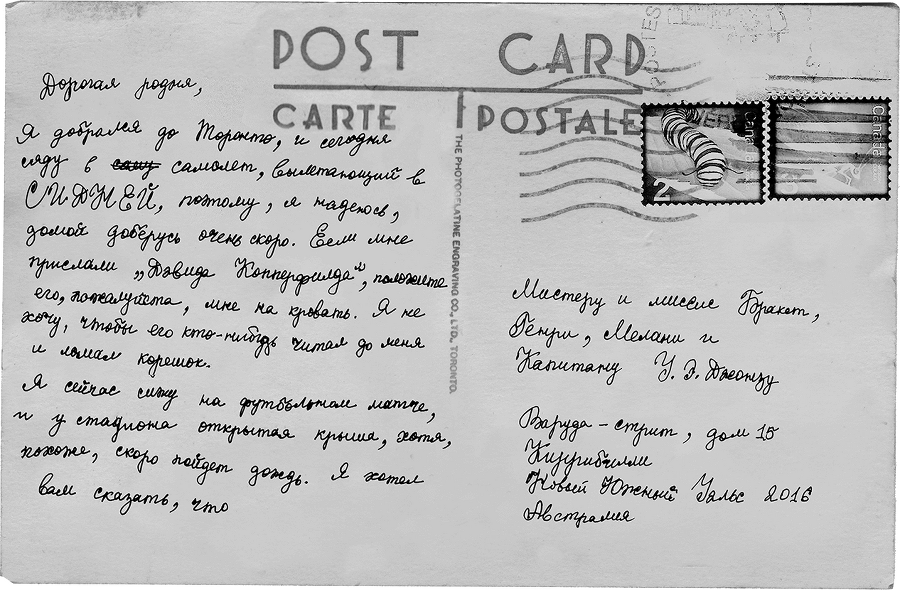 POST CARD
CARTE POSTALE
THE PHOTOGELATINE ENGRAVING CO., LTD., TORONTO.
POSTES
Canada
2
Canada
Дорогая родня,
Я добрался до Торонто, и сегодня
сяду в самолет, вылетающий в
СИДНЕЙ, поэтому, я надеюсь,
домой доберусь очень скоро. Если мне
прислали „Дэвида Копперфилда", положите
его, пожалуйста, мне на кровать. Я не
хочу, чтобы его кто-нибудь читал до меня
и ломал корешок.
Я сейчас сижу на футбольном матче,
и у стадиона открытая крыша, хотя,
похоже, скоро пойдет дождь. Я хотел
вам сказать, что
Мистеру и миссис Бракет,
Генри, Мелани и
Капитану У. Э. Джонзу
Варуда-стрит, дом 15
Кизурибилли
Новый Южный Уэльс 2016
Австралия